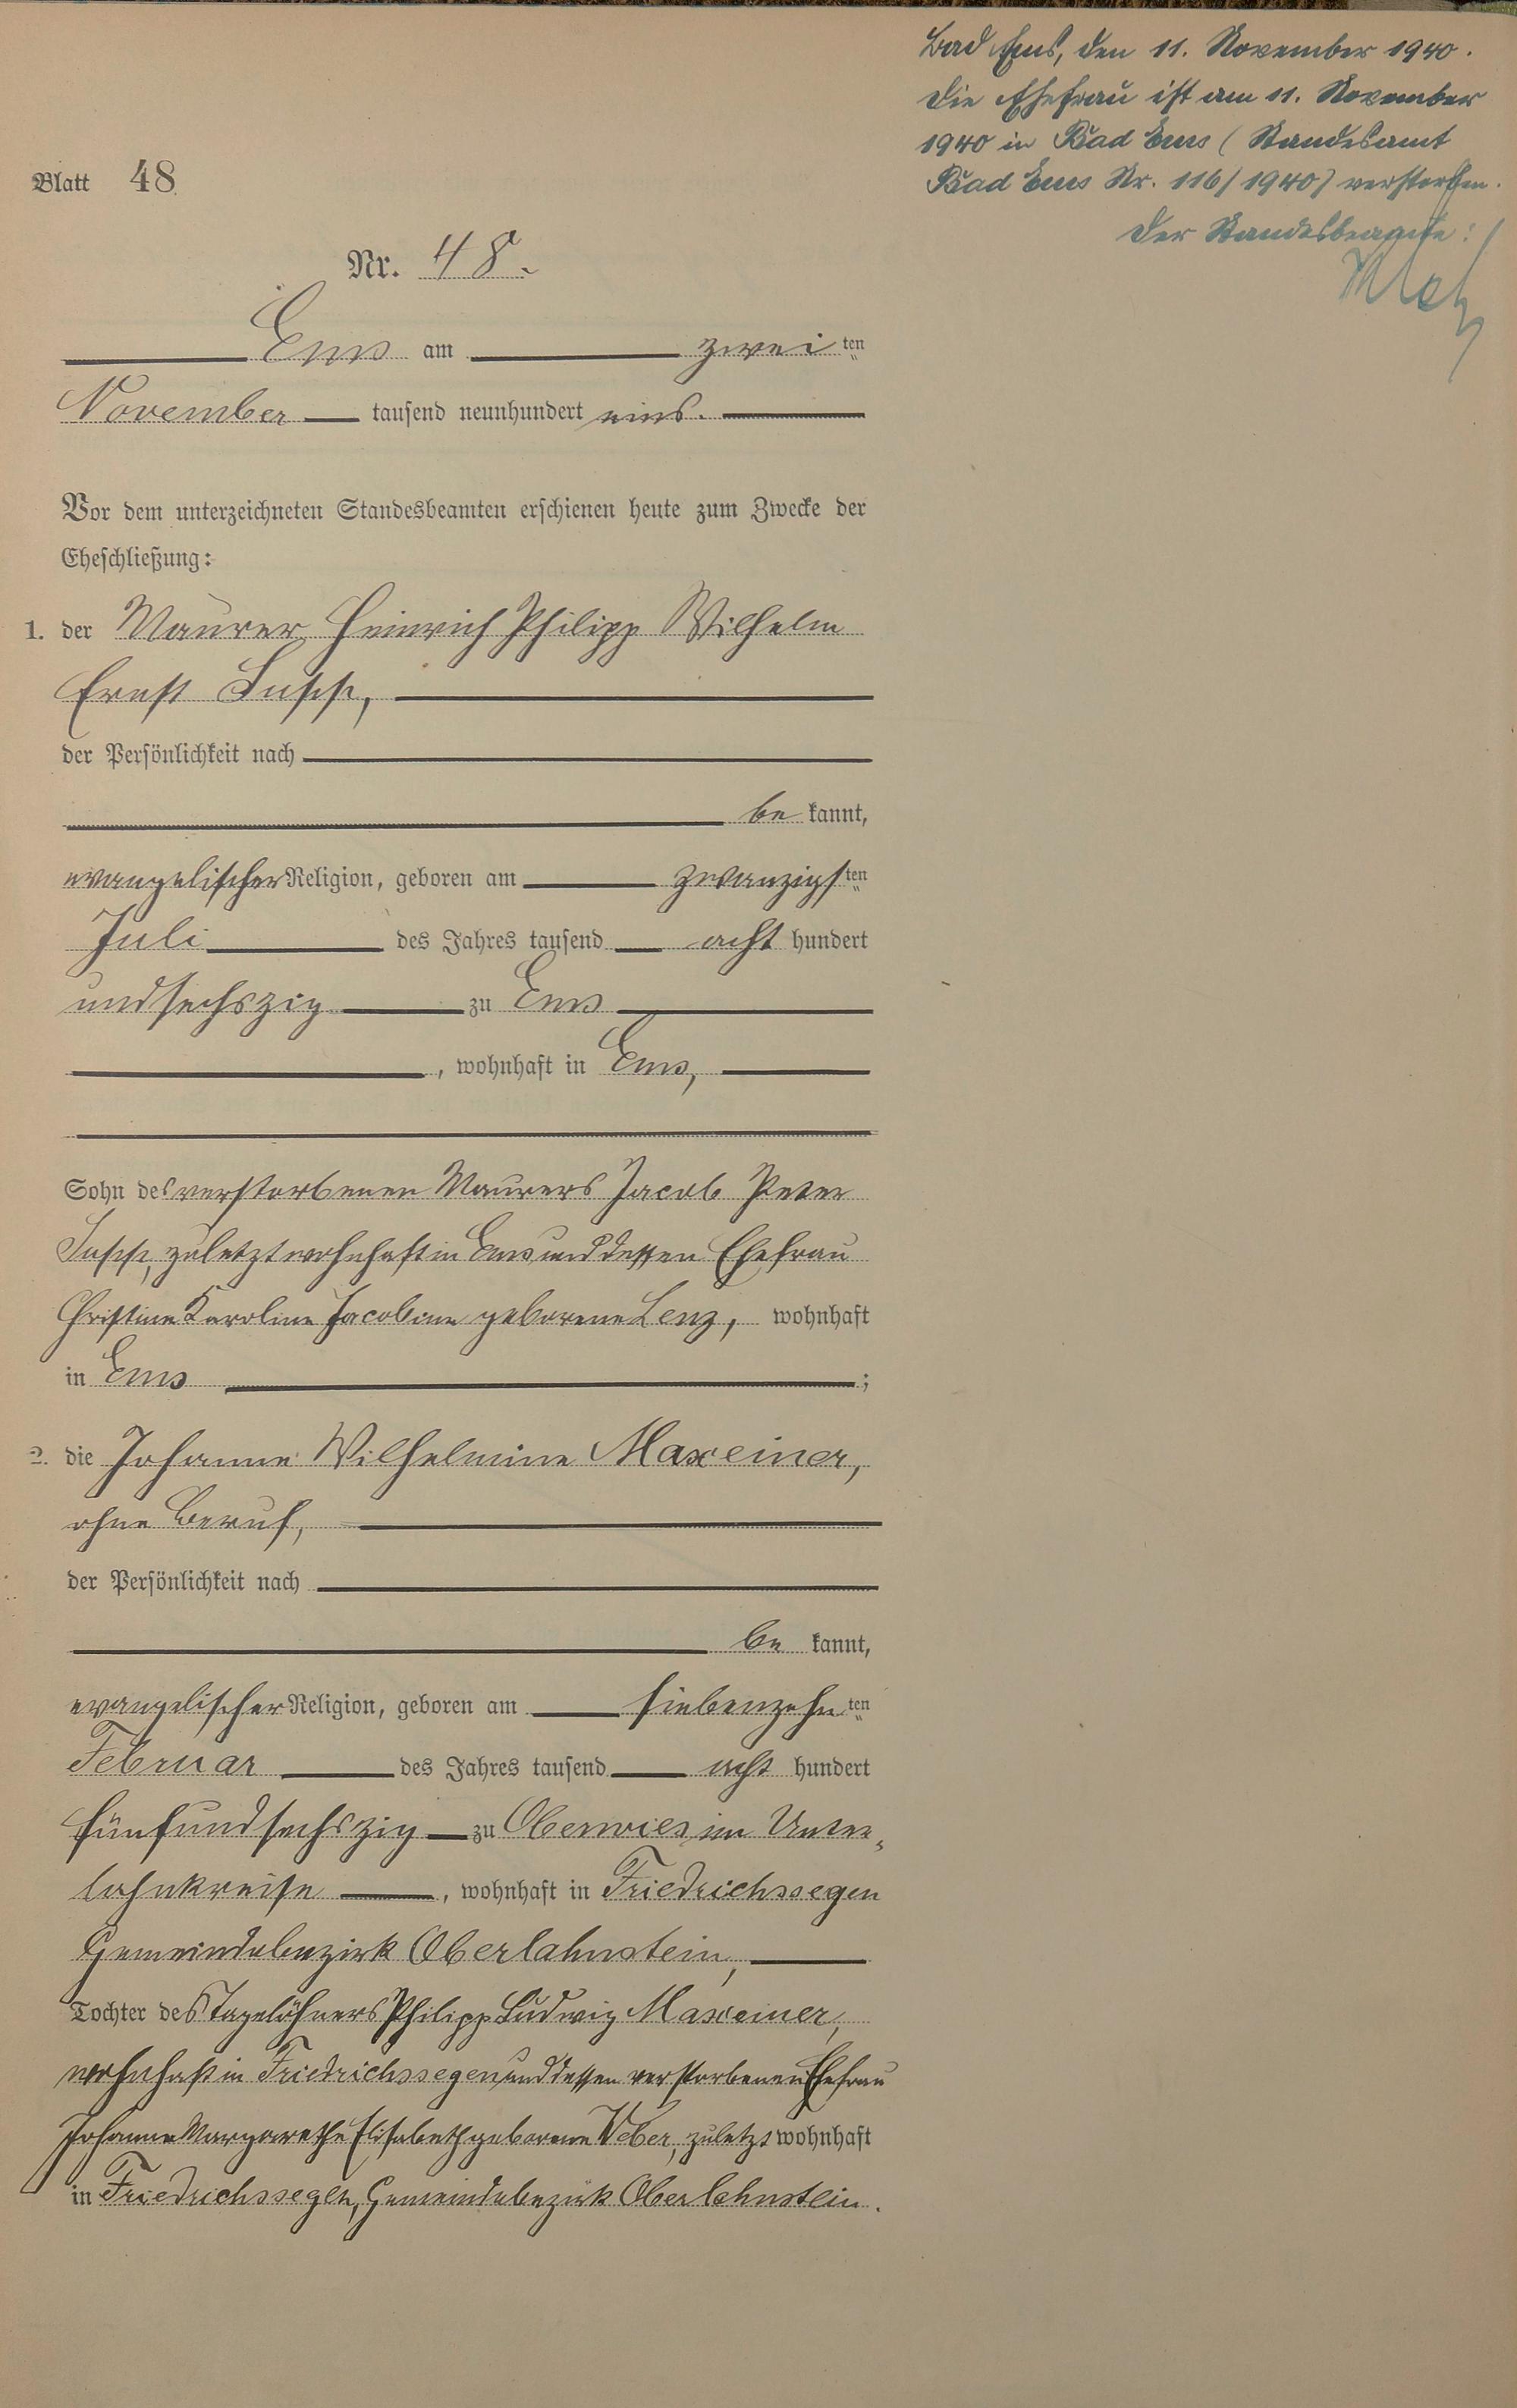 Bad Ems, den 11. November 1940.
Die Ehefrau ist am 11. November
1940 in Bad Ems (Standesamt
Bad Ems Nr. 116/1940) verstorben.
Der Standesbeamte:
Blatt 48
Nr. 48.
Ems am zwei ten
November tausend neunhundert eins.
Vor dem unterzeichneten Standesbeamten erschienen heute zum Zwecke der
Eheschließung:
1. der Maurer Heinrich Philipp Wilhelm
Ernst
der Persönlichkeit nach
be kannt,
evangelischer Religion, geboren am zwanzigsten
Juli des Jahres tausend acht hundert
undsechszig zu Ems
, wohnhaft in Ems,
Sohn des verstorbenen Maurers Jacob Peter
zuletzt wohnhaft in Ems und dessen Ehefrau
Christine Karoline Jacobine geborene Lenz, wohnhaft
in Ems ;
2. die Johanne Wilhelmine Maxeiner,
ohne Beruf,
der Persönlichkeit nach
be kannt,
evangelischer Religion, geboren am siebenzehnten
Februar des Jahres tausend acht hundert
fünfundsechszig zu Oberwies im Unter-
lahnkreise , wohnhaft in Friedrichssegen
Gemeindebezirk Oberlahnstein,
Tochter des Tagelöhners Philipp Ludwig Maxeiner,
wohnhaft in Friedrichssegen und dessen verstorbenen Ehefrau
Johanne Margarethe Elisabeth geborene Weber, zuletzt wohnhaft
in Friedrichssegen, Gemeindebezirk Oberlahnstein.